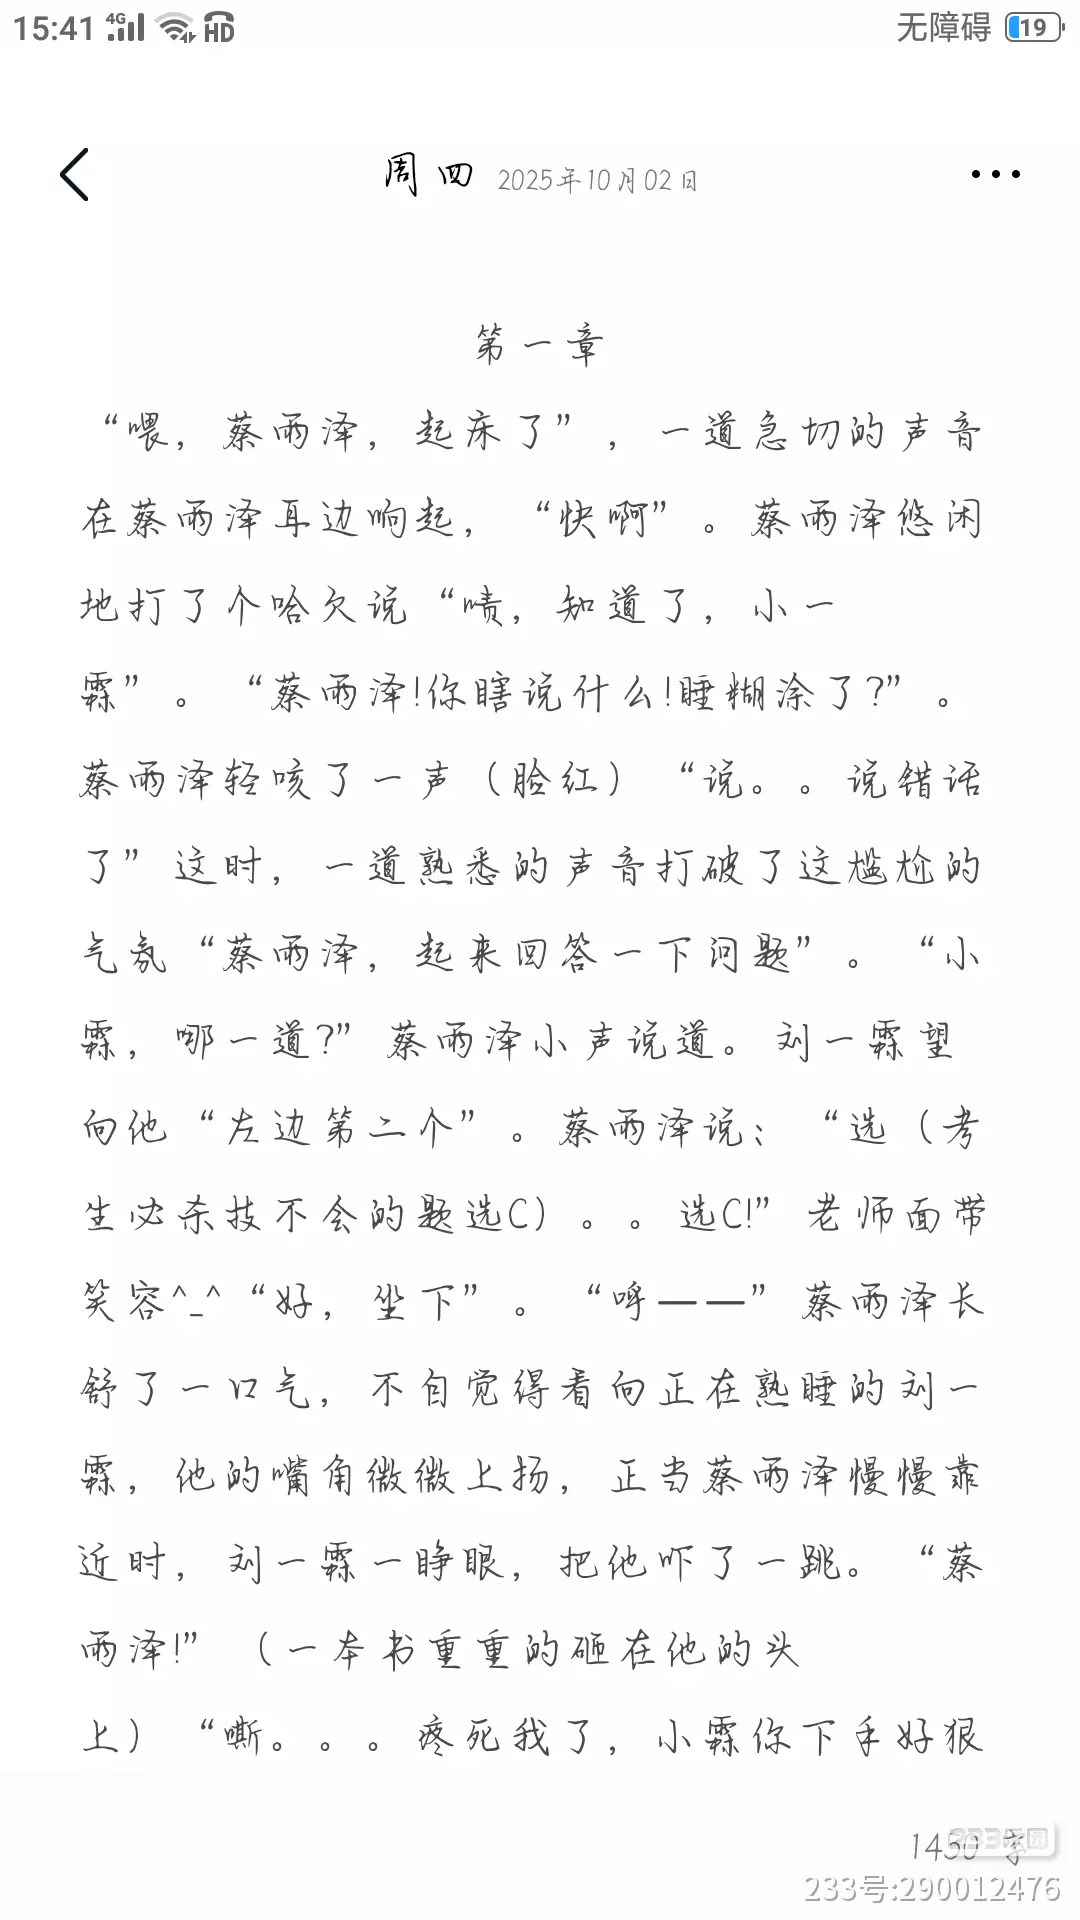 15:41 4G HD 无障碍 19
周四 2025年10月02日
第一章
“喂，蔡雨泽，起床了”，一道急切的声音
在蔡雨泽耳边响起，“快啊”。蔡雨泽悠闲
地打了个哈欠说“啧，知道了，小一
霖”。“蔡雨泽!你瞎说什么!睡糊涂了?”。
蔡雨泽轻咳了一声（脸红）“说。。说错话
了”这时，一道熟悉的声音打破了这尴尬的
气氛“蔡雨泽，起来回答一下问题”。“小
霖，哪一道?”蔡雨泽小声说道。刘一霖望
向他“左边第二个”。蔡雨泽说；“选（考
生必杀技不会的题选C）。。选C!”老师面带
笑容^_^“好，坐下”。“呼——”蔡雨泽长
舒了一口气，不自觉得看向正在熟睡的刘一
霖，他的嘴角微微上扬，正当蔡雨泽慢慢靠
近时，刘一霖一睁眼，把他吓了一跳。“蔡
雨泽!”（一本书重重的砸在他的头
上）“嘶。。。疼死我了，小霖你下手好狠
1430 字
233乐园
233号:290012476